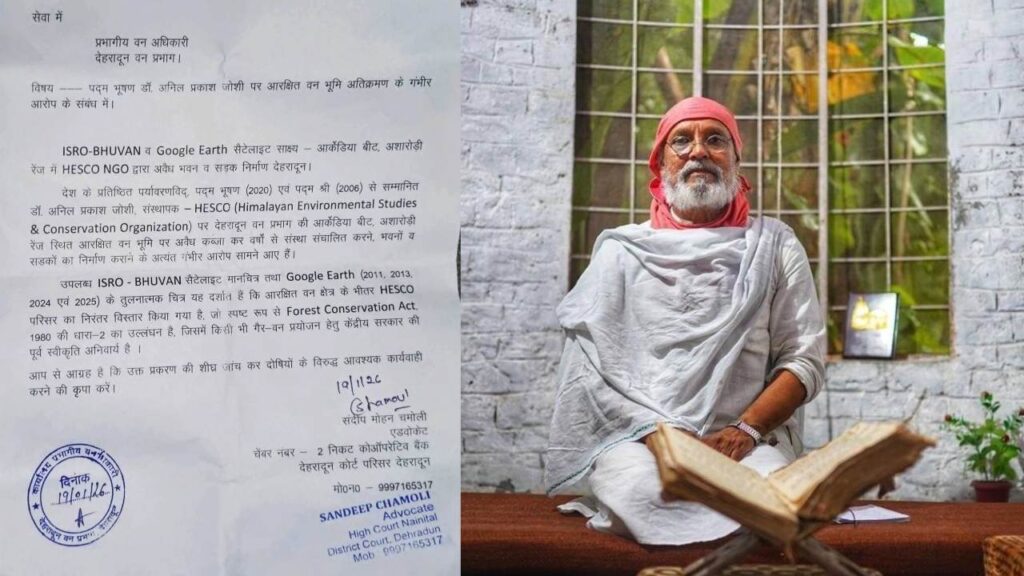 सेवा में
प्रभागीय वन अधिकारी
देहरादून वन प्रभाग।
विषय --- पद्म भूषण डॉ. अनिल प्रकाश जोशी पर आरक्षित वन भूमि अतिक्रमण के गंभीर
आरोप के संबंध में।
ISRO-BHUVAN व Google Earth सैटेलाइट साक्ष्य – आर्केडिया बीट, अशारोड़ी
रेंज में HESCO NGO द्वारा अवैध भवन व सड़क निर्माण देहरादून।
देश के प्रतिष्ठित पर्यावरणविद्, पद्म भूषण (2020) एवं पद्म श्री (2006) से सम्मानित
डॉ. अनिल प्रकाश जोशी, संस्थापक – HESCO (Himalayan Environmental Studies
& Conservation Organization) पर देहरादून वन प्रभाग की आर्केडिया बीट, अशारोड़ी
रेंज स्थित आरक्षित वन भूमि पर अवैध कब्जा कर वर्षों से संस्था संचालित करने, भवनों व
सड़कों का निर्माण कराने के अत्यंत गंभीर आरोप सामने आए हैं।
उपलब्ध ISRO - BHUVAN सैटेलाइट मानचित्र तथा Google Earth (2011, 2013,
2024 एवं 2025) के तुलनात्मक चित्र यह दर्शाते हैं कि आरक्षित वन क्षेत्र के भीतर HESCO
परिसर का निरंतर विस्तार किया गया है, जो स्पष्ट रूप से Forest Conservation Act,
1980 की धारा-2 का उल्लंघन है, जिसमें किसी भी गैर-वन प्रयोजन हेतु केंद्रीय सरकार की
पूर्व स्वीकृति अनिवार्य है ।
आप से आग्रह है कि उक्त प्रकरण की शीघ्र जांच कर दोषियों के विरुद्ध आवश्यक कार्यवाही
करने की कृपा करें।
19/1/26
Chamoli
संदीप मोहन चमोली
एडवोकेट
चेंबर नम्बर – 2 निकट कोऑपरेटिव बैंक
देहरादून कोर्ट परिसर देहरादून
मो०न० – 9997165317
SANDEEP CHAMOLI
Advocate
High Court Nainital
District Court, Dehradun
Mob. 9997165317
कार्यालय प्रभागीय वनाधिकारी
दिनांक
19/01/26
देहरादून वन प्रभाग